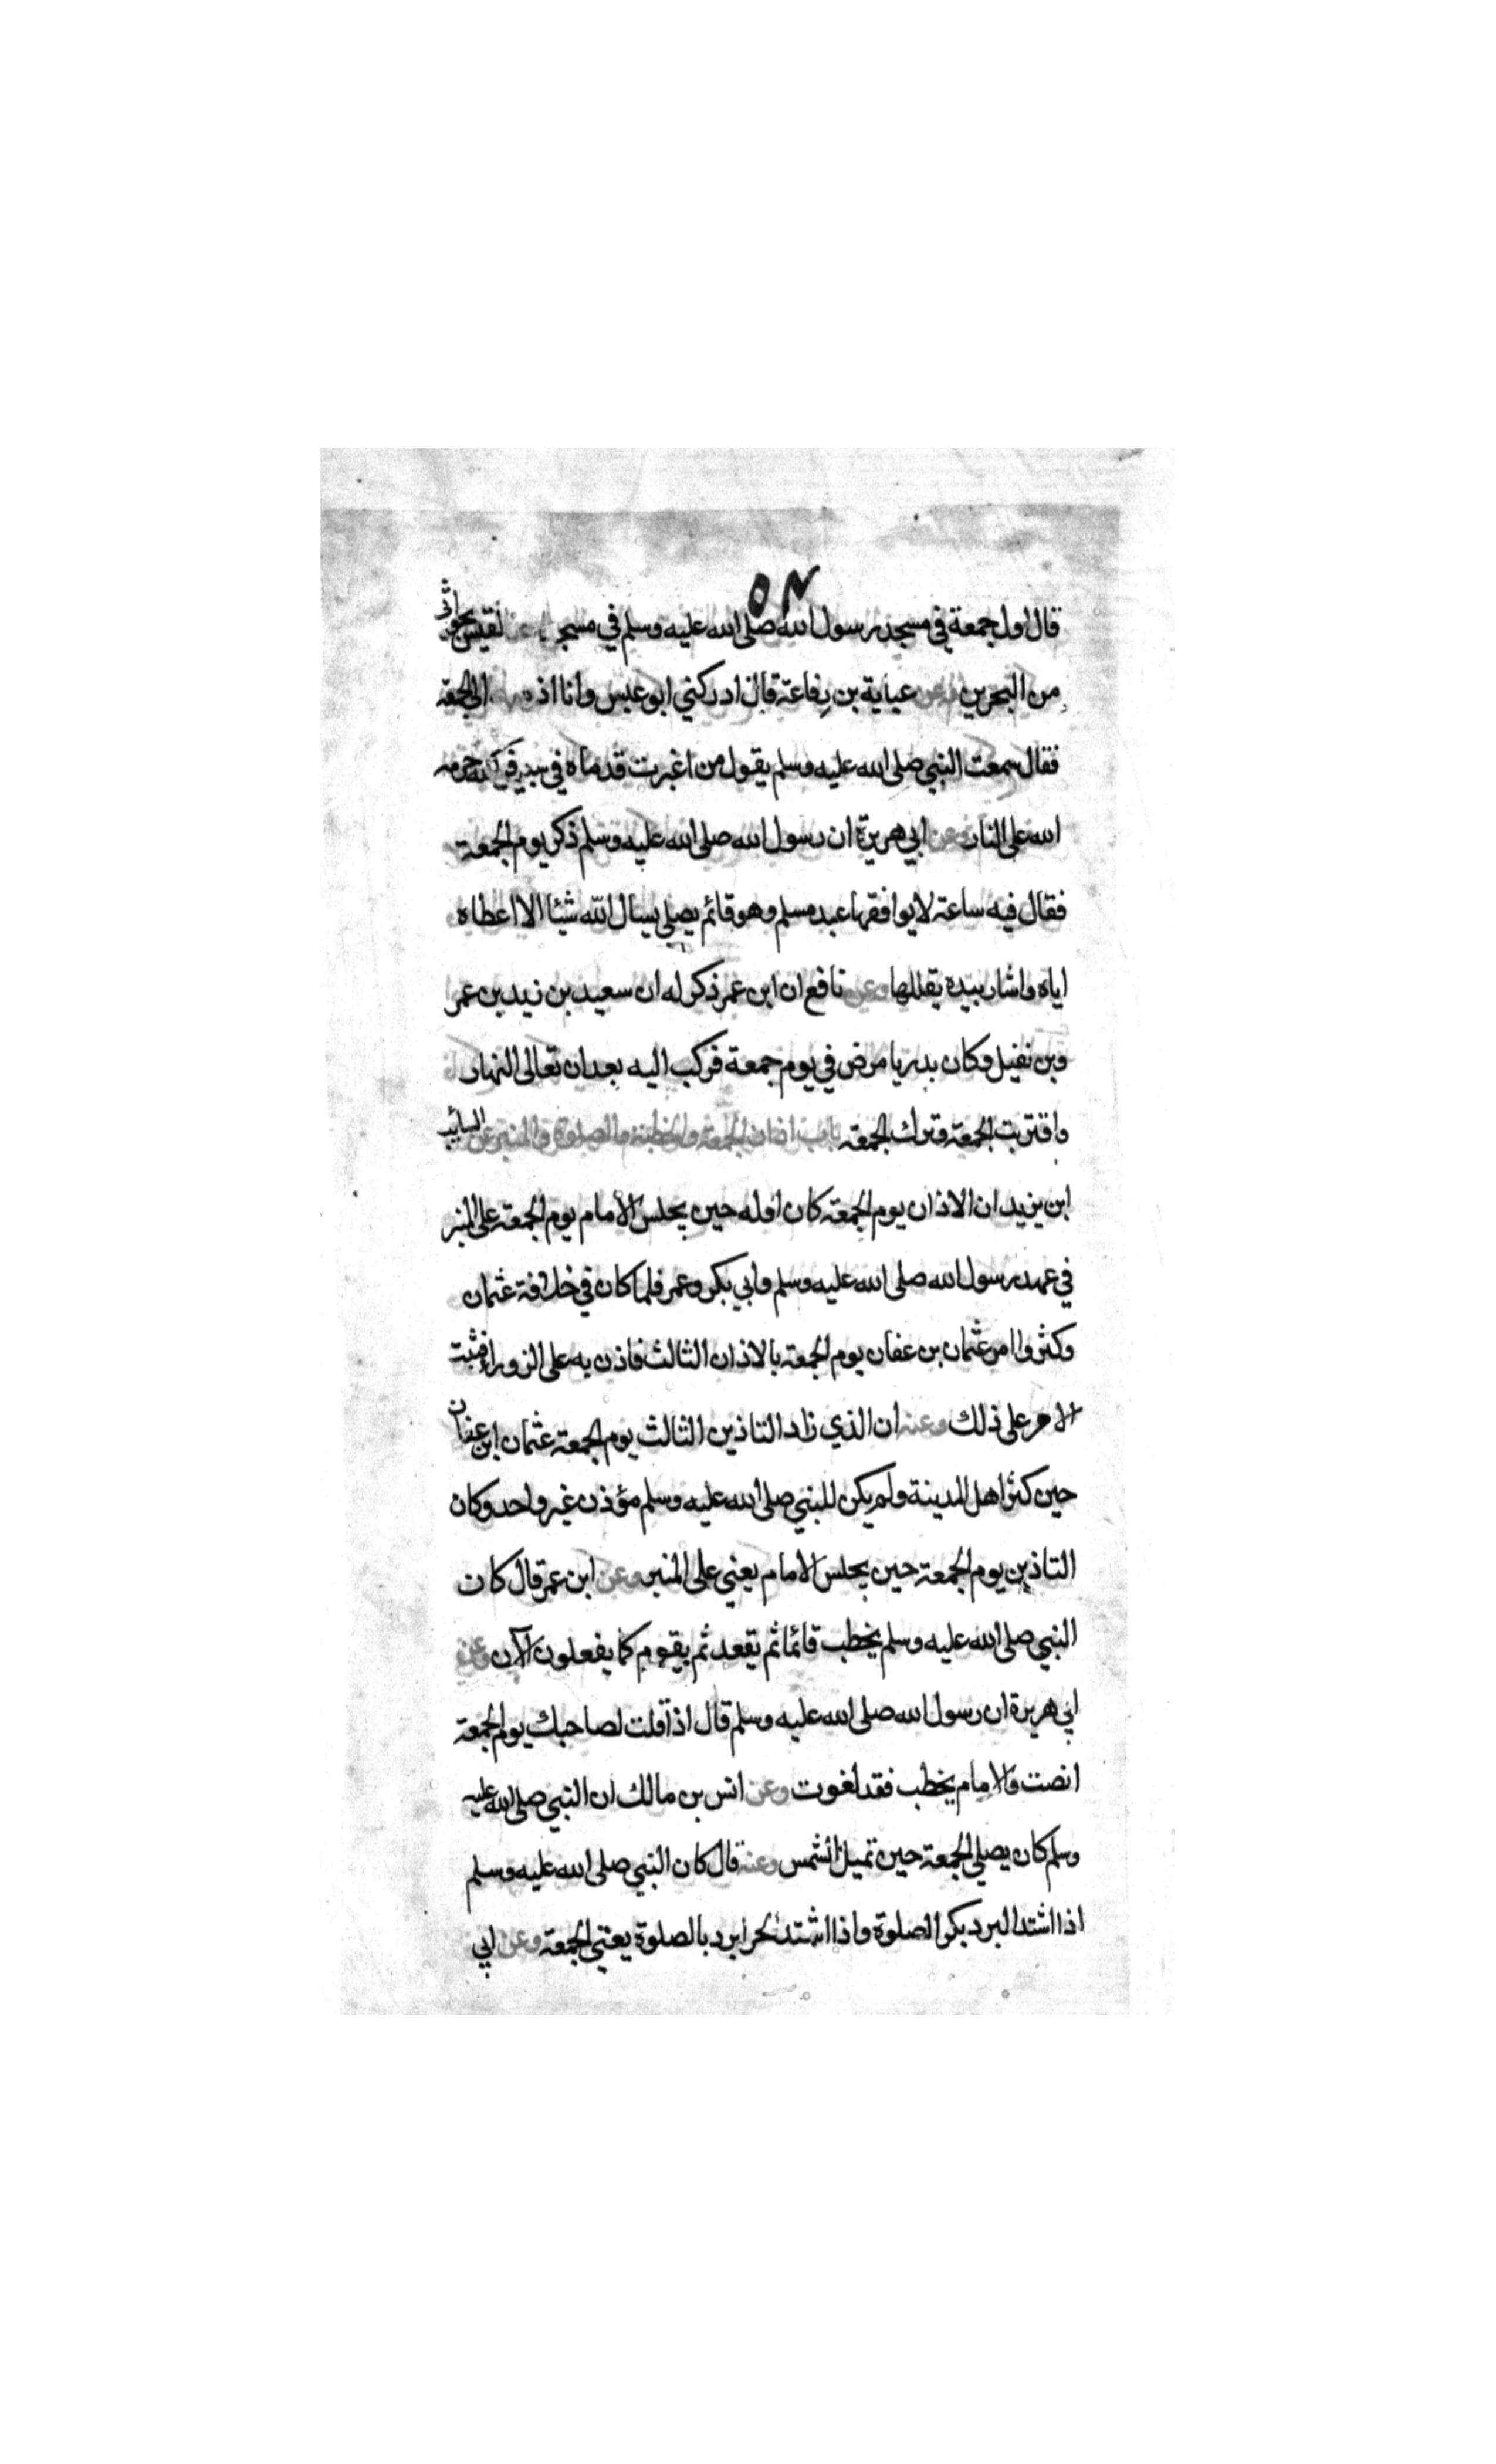 ٥٢
قال اول جمعة في مسجد رسول الله صلى الله عليه وسلم في مسجد القيس بجواثى
من البحرين وعن عباية بن رفاعة قال ادركني ابو عبس وانا اذهب الى الجمعة
فقال سمعت النبي صلى الله عليه وسلم يقول من اغبرت قدماه في سبيل الله حرمه
الله على النار وعن ابي هريرة ان رسول الله صلى الله عليه وسلم ذكر يوم الجمعة
فقال فيه ساعة لا يوافقها عبد مسلم وهو قائم يصلي يسال الله شيئا الا اعطاه
اياه واشار بيده يقللها وعن نافع ان ابن عمر ذكر له ان سعيد بن زيد بن عمر
وبن نفيل وكان بدريا مرض في يوم جمعة فركب اليه بعد ان تعالى النهار
واقتربت الجمعة وترك الجمعة باب اذان الجمعة والخطبة والصلوة والمنبر عن السائب
ابن يزيد ان الاذان يوم الجمعة كان اوله حين يجلس الامام يوم الجمعة على المنبر
في عهد رسول الله صلى الله عليه وسلم وابي بكر وعمر فلما كان في خلافة عثمان
وكثروا امر عثمان بن عفان يوم الجمعة بالاذان الثالث فاذن به على الزوراء فثبت
الامر على ذلك وعنه ان الذي زاد التاذين الثالث يوم الجمعة عثمان ابن عفان
حين كثر اهل المدينة ولم يكن للنبي صلى الله عليه وسلم مؤذن غير واحد وكان
التاذين يوم الجمعة حين يجلس الامام يعني على المنبر وعن ابن عمر قال كان
النبي صلى الله عليه وسلم يخطب قائما ثم يقعد ثم يقوم كما يفعلون الآن وعن
ابي هريرة ان رسول الله صلى الله عليه وسلم قال اذا قلت لصاحبك يوم الجمعة
انصت والامام يخطب فقد لغوت وعن انس بن مالك ان النبي صلى الله عليه
وسلم كان يصلي الجمعة حين تميل الشمس وعنه قال كان النبي صلى الله عليه وسلم
اذا اشتد البرد بكر الصلوة واذا اشتد الحر ابرد بالصلوة يعني الجمعة وعن ابي